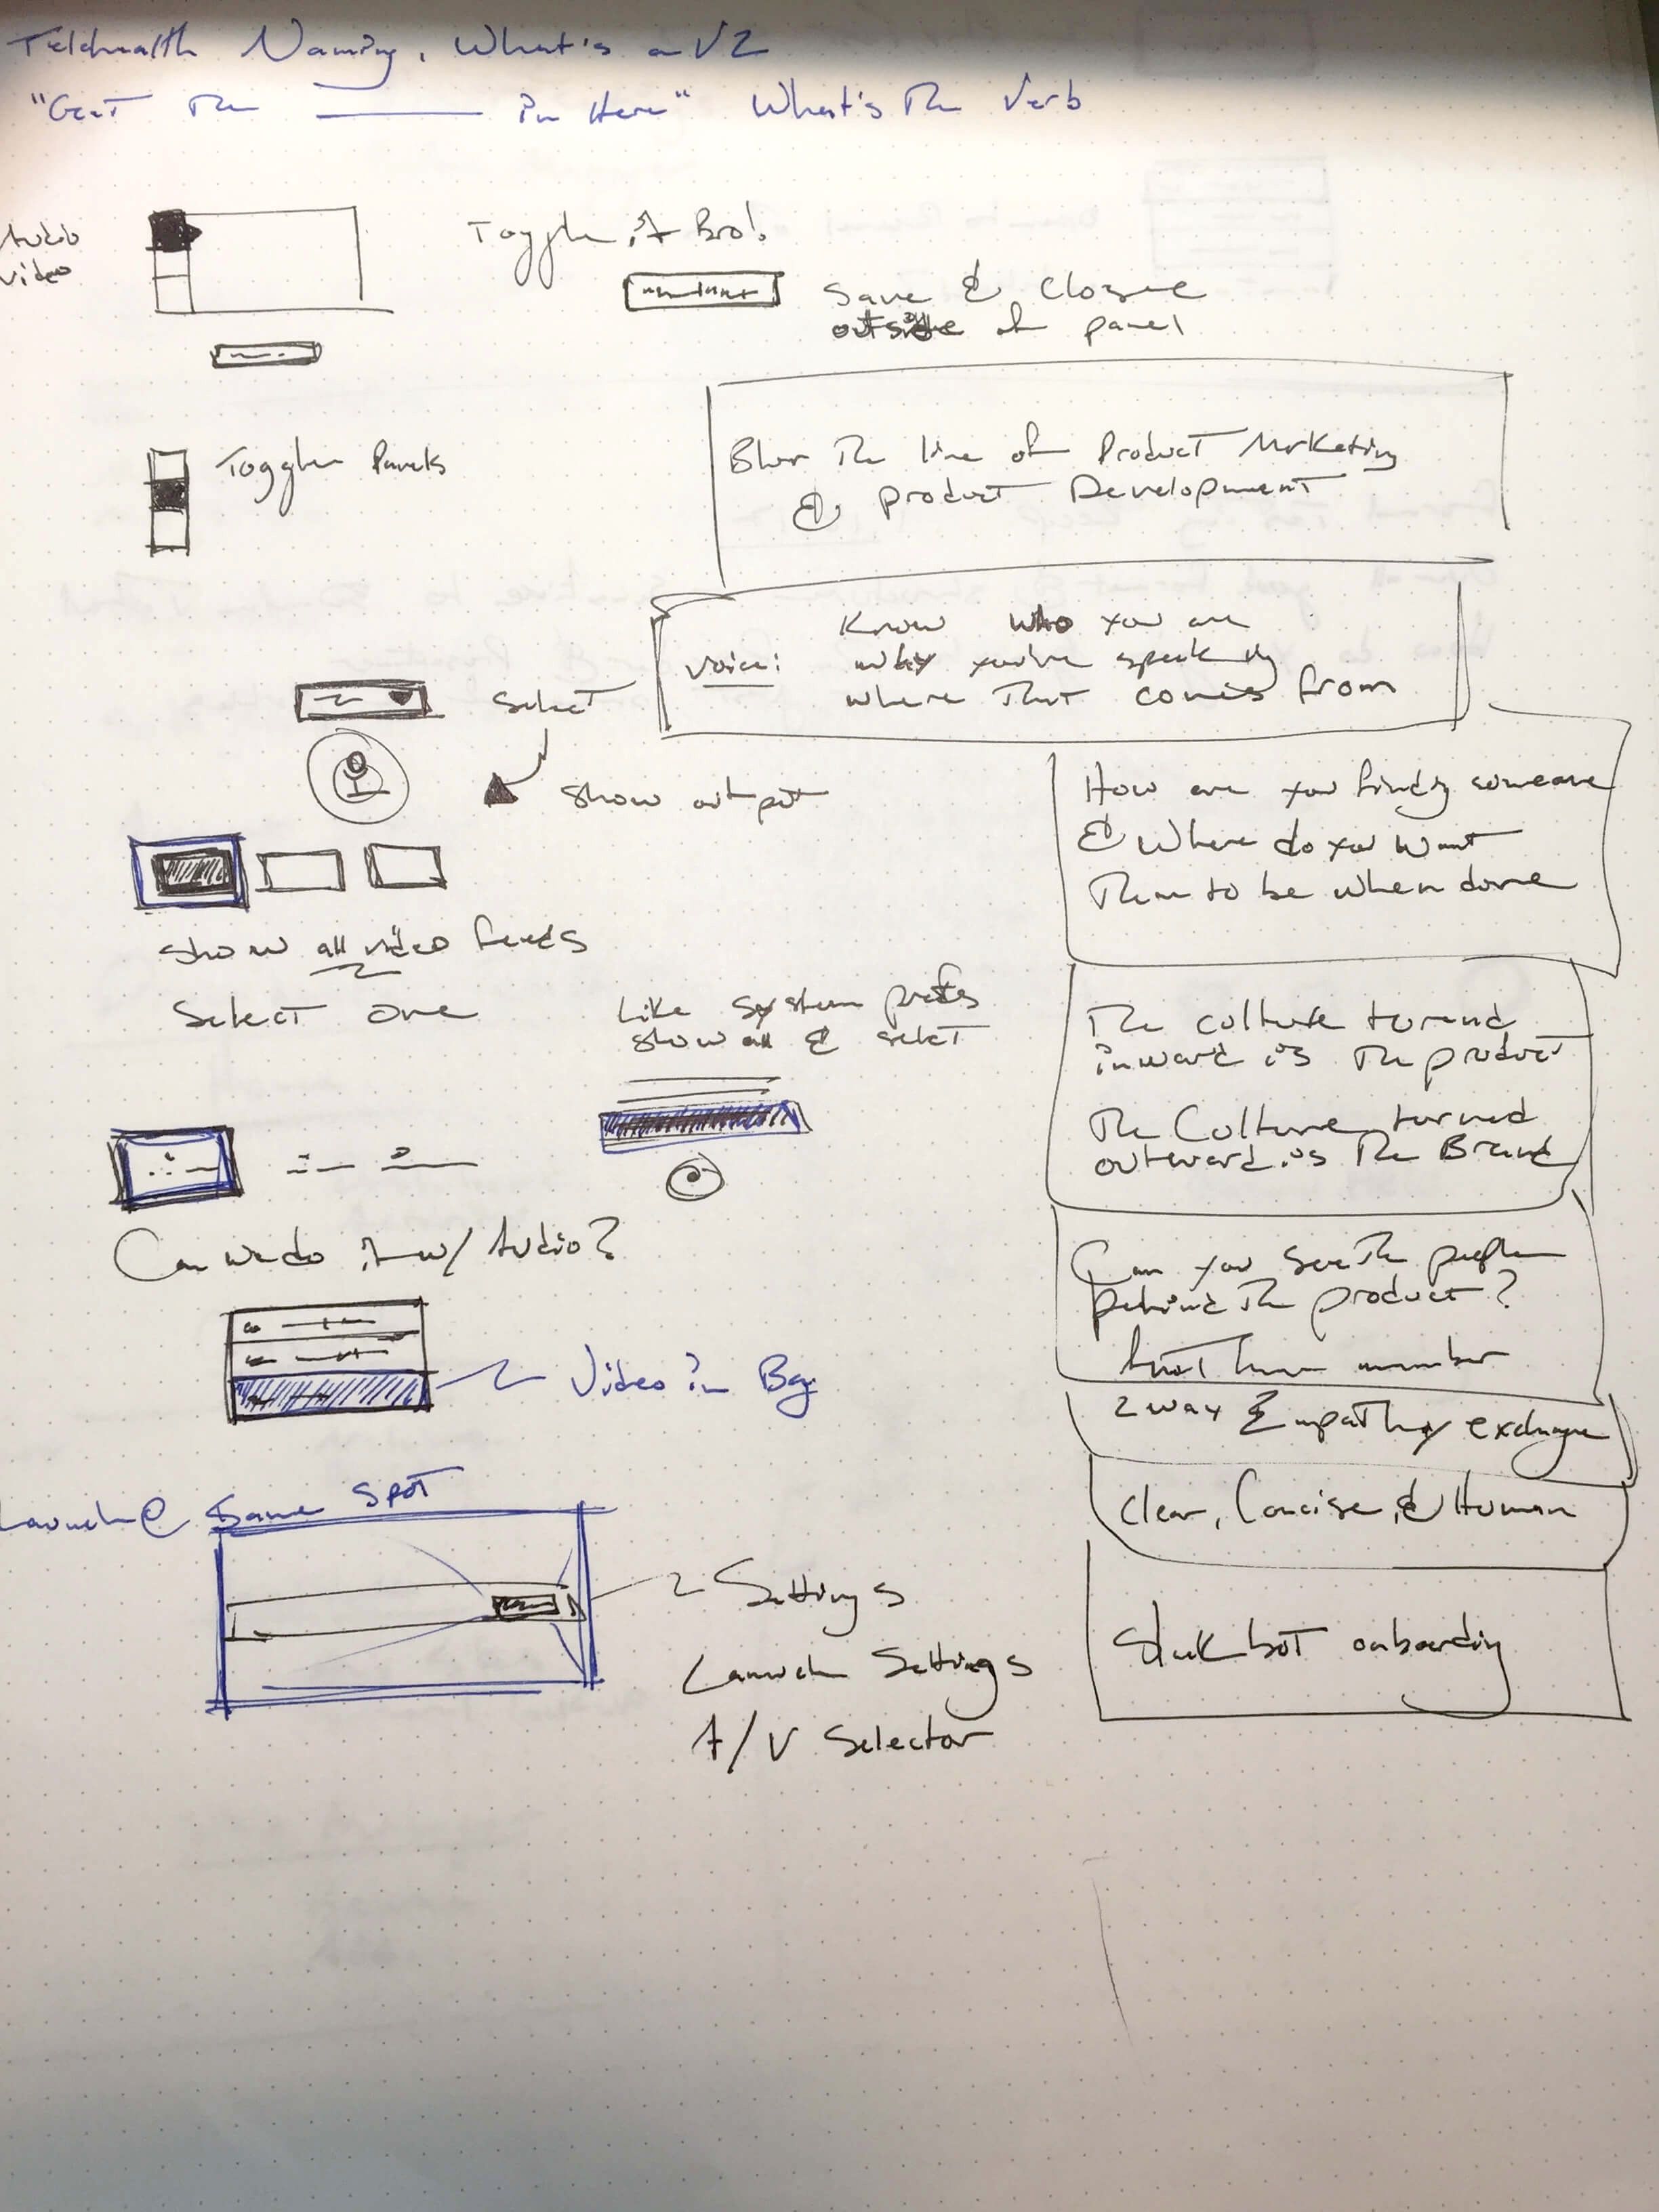 Telehealth Naming, What's a V2
"Get The ___ in Here" What's The Verb
Audio
Video
Toggle it Bro!
Save & Close
outside of panel
Toggle Panels
Blur The line of Product Marketing
& product Development
Voice:
Know who you are
why you're speaking
where That comes from
Select
Show output
How are you finding someone
& Where do you Want
Them to be when done
Show all video feeds
Select one
Like system prefs
show all & select
The culture turned
inward is The product
The Culture turned
outward is The Brand
Can we do it w/ Audio?
Can you see The people
behind The product?
Video in Bg
2 way Empathy exchange
Clear, Concise, & Human
Launch @ Same Spot
Settings
Launch Settings
A/V Selector
Slack bot onboarding